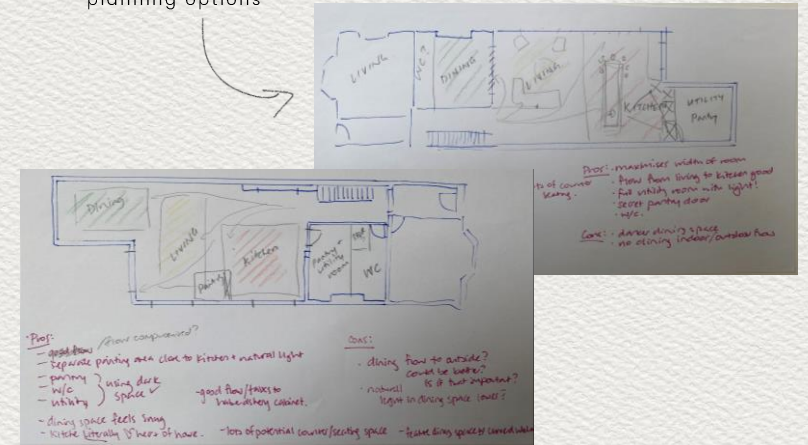 planning options
LIVING
WC?
DINING
LIVING
KITCHEN
UTILITY
Pantry
Pros: - maximises width of room
- flow from living to kitchen good
- full utility room with light!
- secret pantry door
- w/c.
of counter
seating.
Cons: - darker dining space
- no dining indoor/outdoor flow
Dining
LIVING
Kitchen
pantry
Pantry +
utility
room
WC
Pros:
flow compromised?
- good flow
- separate pantry area close to kitchen + natural light
- pantry
- w/c
- utility
using dark
space ✓
- good flow/access to
- dining space feels snug
- Kitchen Literally heart of house.
- lots of potential counter/seating space
Cons:
- dining flow to outside?
could be better?
Is it that important?
- natural
light in dining space lower?